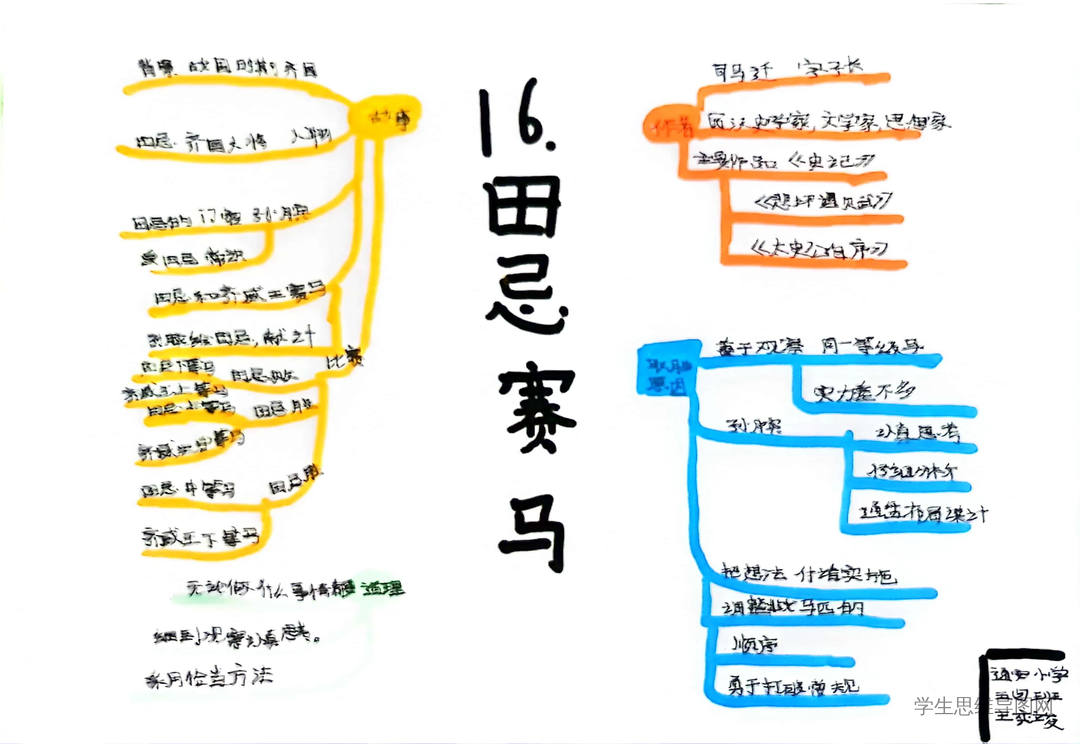 16.田忌赛马
故事
背景 战国时期 齐国
田忌 齐国大将 人物
田忌的门客 孙膑
受田忌赏识
田忌和齐威王赛马
孙膑给田忌,献计
比赛
田忌下等马 田忌败
齐威王上等马
田忌上等马 田忌胜
齐威王中等马
田忌中等马 田忌胜
齐威王下等马
无论做什么事情都要 道理
细到观察认真思考。
采用恰当方法
作者
司马迁 字子长
西汉史学家,文学家,思想家
主要作品 《史记》
《太史公自序》
取胜原因
善于观察 同一等级马
实力差不多
孙膑
认真思考
把想法 付诸实施
调整 马匹的
顺序
勇于打破常规
小学
学生思维导图网